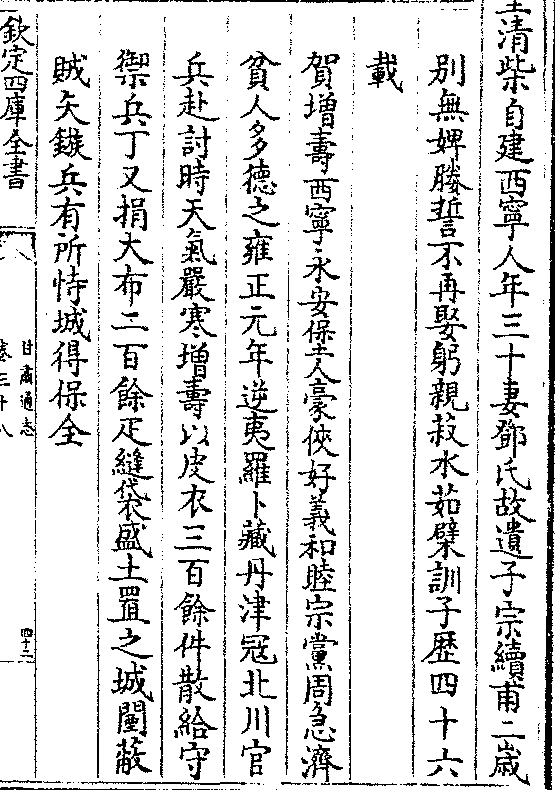 清柴自建西寧人年三十妻鄧氏故遺子宗續甫二歳
別無婢媵誓不再娶躬親菽水茹檗訓子歴四十六
載
賀増壽西寧永安堡人豪俠好義和睦宗黨周急濟
貧人多德之雍正元年逆夷羅卜藏丹津冦北川官
兵赴討時天氣嚴寒増壽以皮衣三百餘件散給守
禦兵丁又捐大布二百餘疋縫袋盛土置之城闉蔽
賊矢鏃兵有所恃城得保全
欽定四庫全書
甘肅通志
卷三十八
四十二